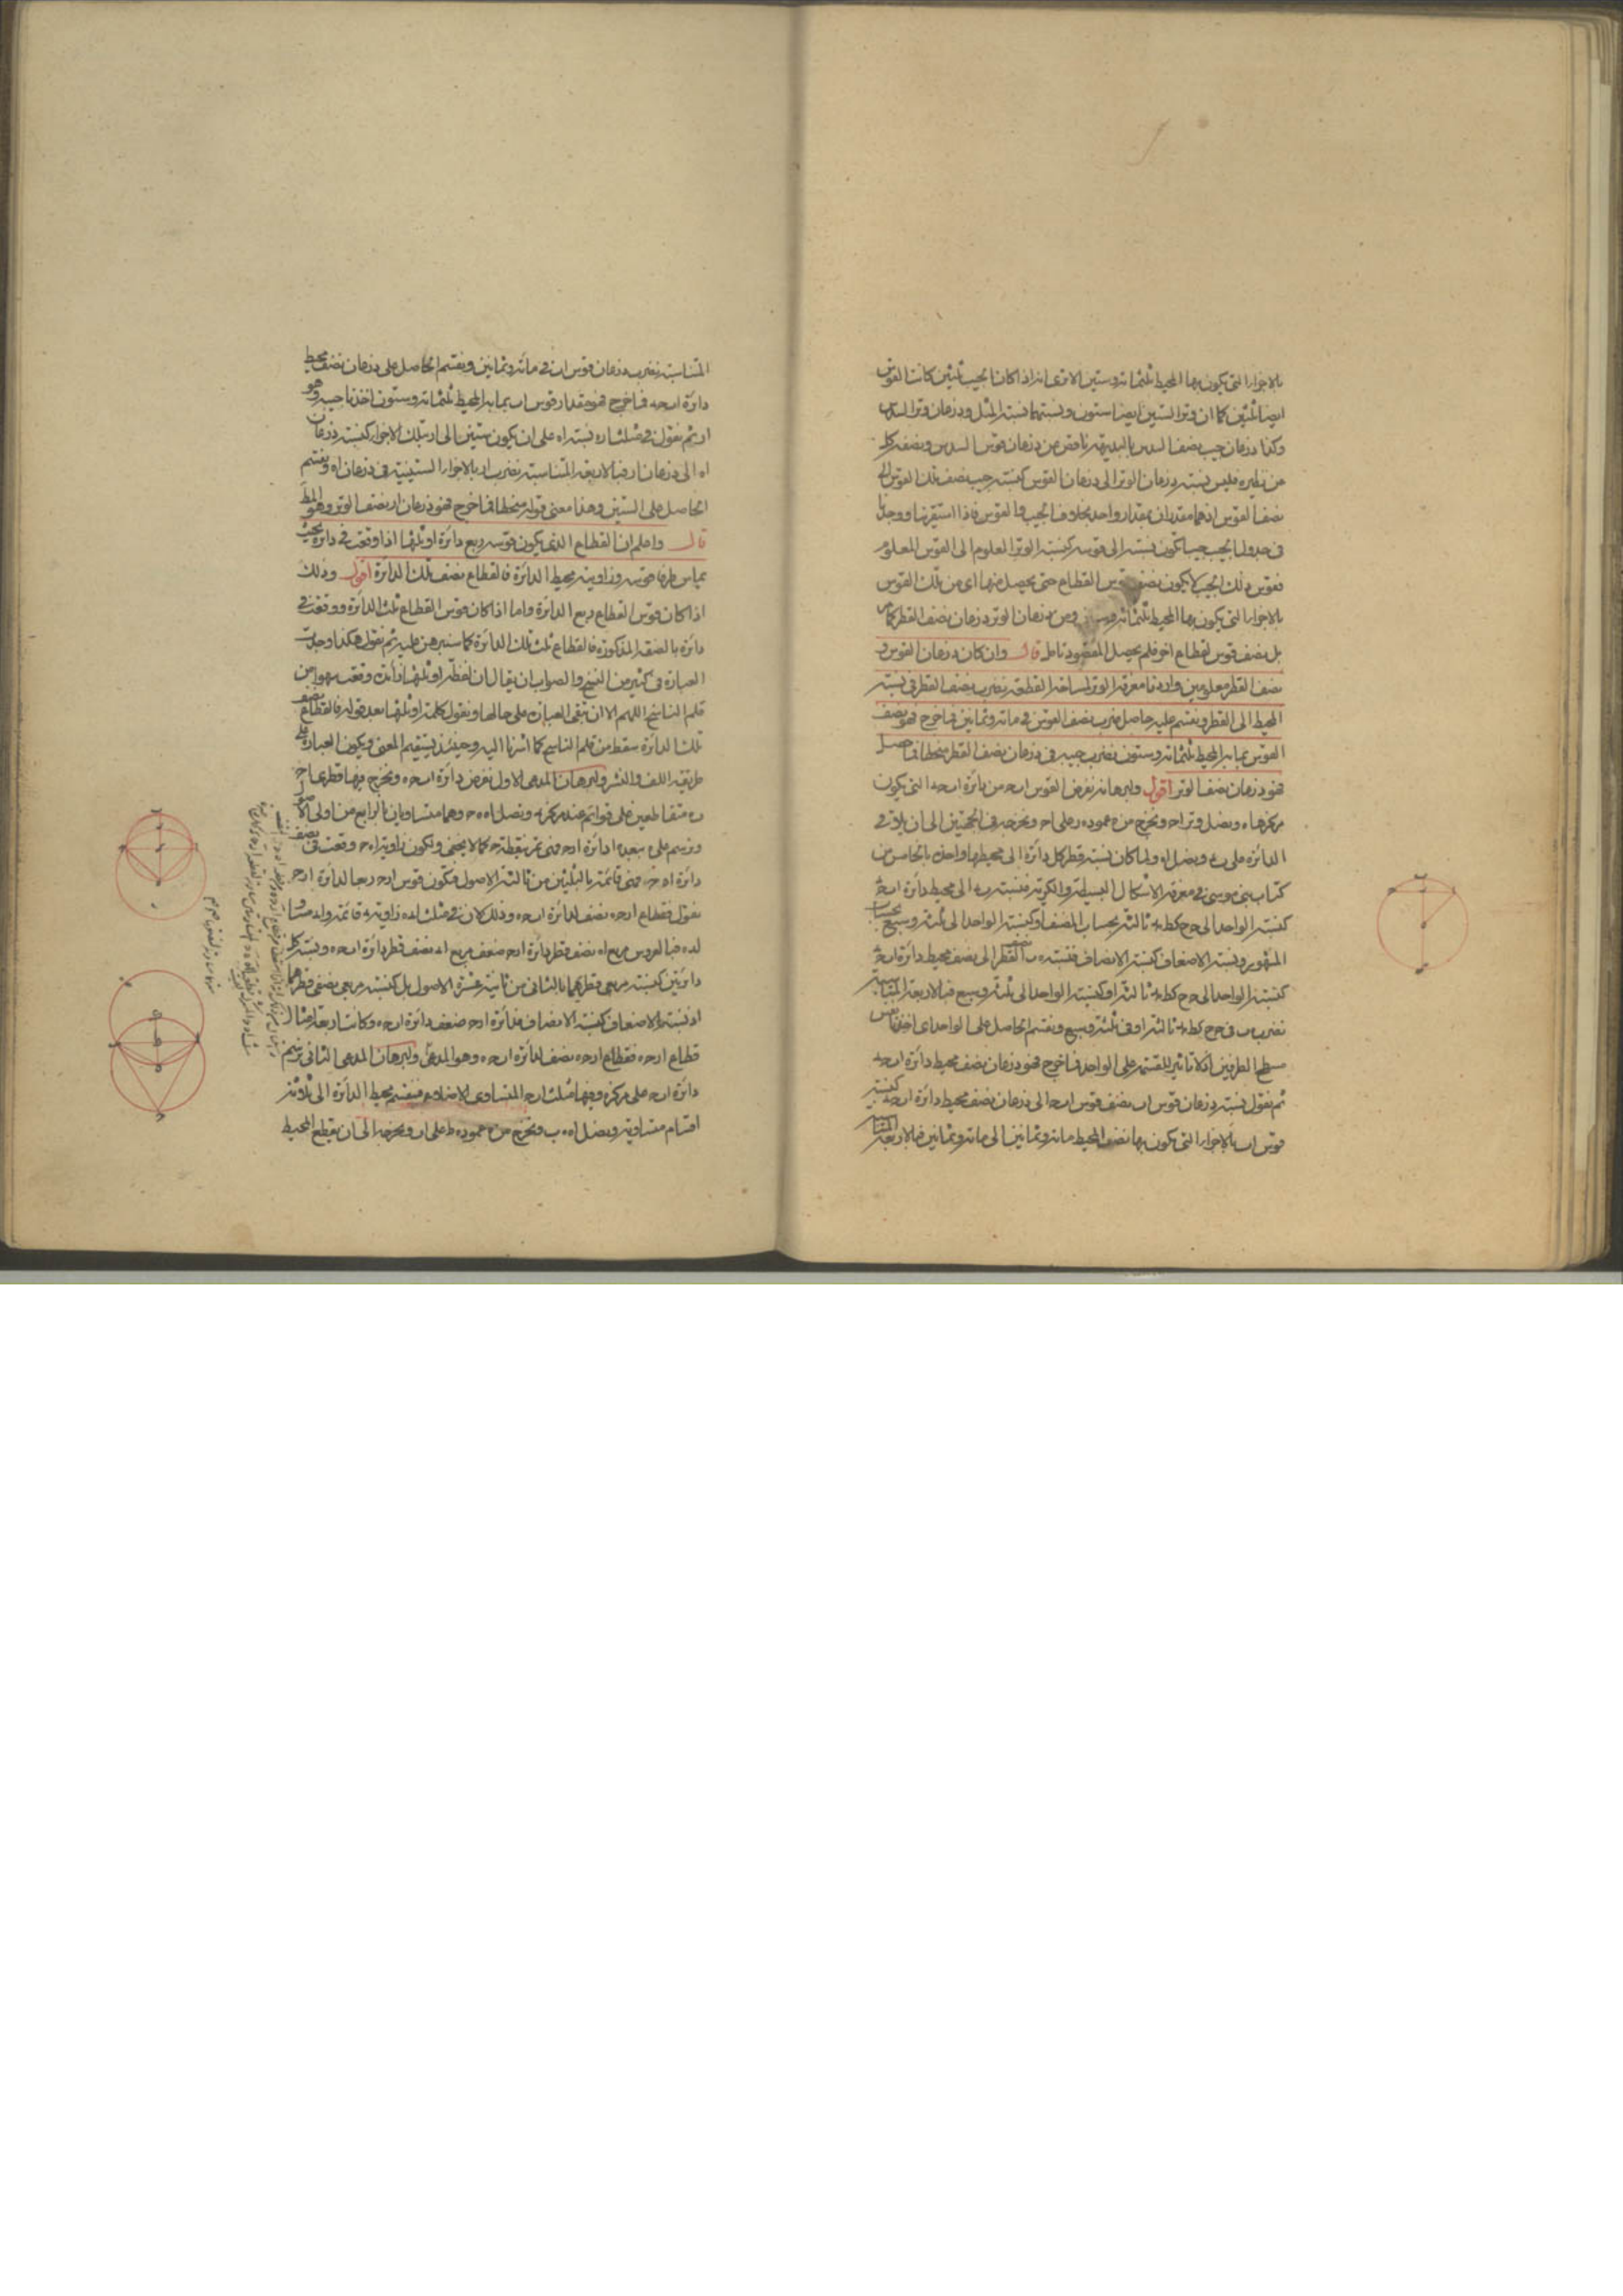 بالاجزاء التى يكون بها المحيط ثلثمائة وستين الا ترى انه اذا كان الجيب ثلثين كانت القوس
ايضا ثلثين كما ان وتر الستين ايضا ستون ونسبتهما نسبة المثل وذرعان وتر السدس
وكذا ذرعان جيب نصف السدس بالبديهة ناقص من ذرعان قوس السدس ونصفه كل
من نظيره فليس نسبة ذرعان الوتر الى ذرعان القوس كنسبة جيب نصف تلك القوس الى
نصف القوس اذ هما مقدران بمقدار واحد بخلاف الجيب والقوس فاذا استقرينا ووجدنا
فى جدول الجيب جيبا تكون نسبته الى قوسه كنسبة الوتر المعلوم الى القوس المعلوم
فقوس ذلك الجيب لا يكون نصف قوس القطاع حتى يحصل منها اى من تلك القوس
بالاجزاء التى يكون بها المحيط ثلثمائة وستين ومن ذرعان الوتر ذرعان نصف القطر كما مر
بل نصف قوس لقطاع اخر فلم يحصل المقصود تامل قال وان كان ذرعان القوس و
نصف القطر معلومين واردنا معرفة الوتر لمساحة القطعة نضرب نصف القطر فى نسبة
المحيط الى القطر ونقسم عليه حاصل ضرب نصف القوس فى مائة وثمانين فما خرج فهو نصف
القوس بما به المحيط ثلثمائة وستون نضرب جيبه فى ذرعان نصف القطر منحطا فما حصل
فهو ذرعان نصف الوتر اقول وليبرهانه نفرض القوس ا ب ح من دائرة ا ب ح د التى يكون
مركزها ه ونصل وتر ا ح ونخرج من ه عمود ه ر على ا ح ونخرجه فى الجهتين الى ان يلاقى
الدائرة على ب د ونصل ا ه ولما كان نسبة قطر كل دائرة الى محيطها واحدة بالخامس من
كتاب بنى موسى فى معرفة الاشكال البسيطة والكرية فنسبة ب د الى محيط دائرة ا ب ح د
كنسبة الواحد الى ح ح كط مد ثالثة بحساب المصنف او كنسبة الواحد الى ثلثة وسبع بحساب
المشهور ونسبة الاضعاف كنسبة الانصاف فنسبة ه ب نصف القطر الى نصف محيط دائرة ا ب ح د
كنسبة الواحد الى ح ح كط مد ثالثة او كنسبة الواحد الى ثلثة وسبع فبالاربعة المتناسبة
نضرب ه ب فى ح ح كط مد ثالثة او فى ثلثة وسبع ونقسم الحاصل على الواحد اى اخذنا نفس
مسطح الطرفين اذ لا تاثير للقسمة على الواحد فما خرج فهو ذرعان نصف محيط دائرة ا ب ح د
ثم نقول نسبة ذرعان قوس ا ب نصف قوس ا ب ح الى ذرعان نصف محيط دائرة ا ب ح د كنسبة
قوس ا ب بالاجزاء التى يكون بها نصف المحيط مائة وثمانين الى مائة وثمانين فبالاربعة المتناسبة
المتناسبة نضرب ذرعان قوس ا ب فى مائة وثمانين ونقسم الحاصل على ذرعان نصف محيط
دائرة ا ب ح د فما خرج فهو مقدار قوس ا ب بما به المحيط ثلثمائة وستون اخذنا جيبه وهو
ا ر ثم نقول فى مثلث ا ر ه نسبة ا ه على ان يكون ستين الى ا ر بتلك الاجزاء كنسبة ذرعان
ا ه الى ذرعان ا ر فبالاربعة المتناسبة نضرب ا ر بالاجزاء الستينية فى ذرعان ا ه ونقسم
الحاصل على الستين وهذا معنى قوله منحطا فما خرج فهو ذرعان ا ر نصف الوتر وهو المط
قال واعلم ان القطاع الذى يكون قوسه ربع دائرة او ثلثها اذا وقعت فى دائرة بحيث
يماس طرفا قوسه وزاويته محيط الدائرة فالقطاع نصف تلك الدائرة اقول وذلك
اذا كان قوس القطاع ربع الدائرة واما اذا كان قوس القطاع ثلث الدائرة ووقعت فى
دائرة بالصفة المذكورة فالقطاع ثلث تلك الدائرة كما سنبرهن عليه ثم نقول هكذا وجدت
العبارة فى كثير من النسخ والصواب ان يقال ان لفظة او ثلثها زائدة وقعت سهوا من
قلم الناسخ اللهم الا ان تبقى العبارة على حالها ونقول كلمة او ثلثها بعد قوله فالقطاع نصف
تلك الدائرة سقط من قلم الناسخ كما اشرنا اليه وحينئذ يستقيم المعنى ويكون العبارة على
طريقة اللف والنشر ولبرهان المدعى الاول نفرض دائرة ا ب ح د ونخرج فيها قطرى ا ح
ب د متقاطعين على قوائم عند مركز ه ونصل ا د د ح وهما متساويان بالرابع من اولى الاصول
ونرسم على د ببعد د ا دائرة ا ر ح فهى تمر بنقطة ح كما لا يخفى ولكون زاوية ا د ح وقعت فى نصف
دائرة ا د ح فهى قائمة بالثلثين من ثالثة الاصول فتكون قوس ا ر ح ربعا لدائرة ا ر ح
نقول فقطاع ا ر ح د نصف لدائرة ا ب ح د وذلك لان فى مثلث ا ه د زاوية ه قائمة و ا ه مساو
ل ه د فبالعروس مربع ا د نصف قطر دائرة ا ر ح ضعف مربع ا ه نصف قطر دائرة ا ب ح د ونسبة كل
دائرتين كنسبة مربعى قطريهما بالثانى من ثانية عشرة الاصول بل كنسبة مربعى نصفى قطريهما
اذ نسبة الاضعاف كنسبة الانصاف فدائرة ا ر ح ضعف دائرة ا ب ح د وكانت اربعة امثال
قطاع ا ر ح د فقطاع ا ر ح د نصف لدائرة ا ب ح د وهو المدعى ولبرهان المدعى الثانى نرسم
دائرة ا ب ح على مركز ه وفيها مثلث ا ب ح المتساوى الاضلاع فينقسم محيط الدائرة الى ثلاثة
اقسام متساوية ونصل ا ه ه ب ونخرج من ه عمود ه ط على ا ب ونخرجه الى ان يقطع المحيط